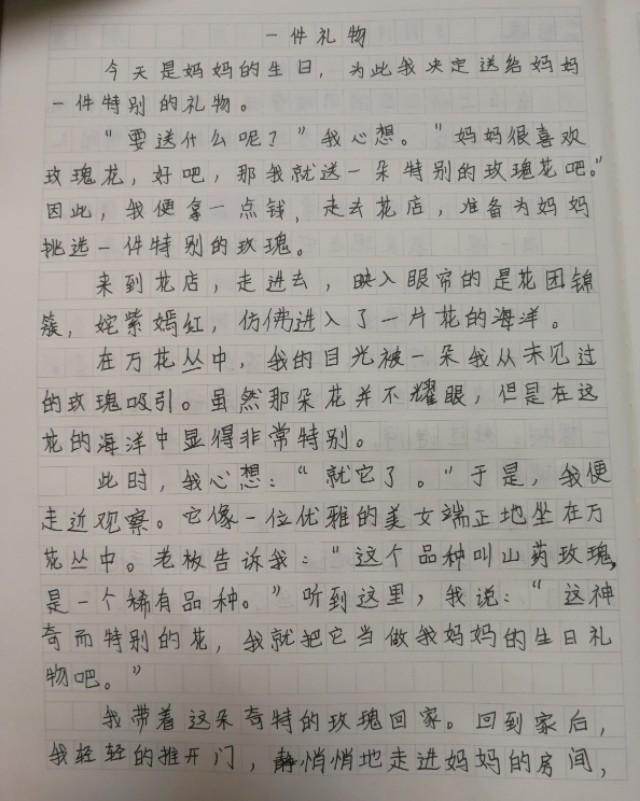 一件礼物
今天是妈妈的生日，为此我决定送给妈妈
一件特别的礼物。
“要送什么呢？”我心想。“妈妈很喜欢
玫瑰花，好吧，那我就送一朵特别的玫瑰花吧。”
因此，我便拿一点钱，走去花店，准备为妈妈
挑选一件特别的玫瑰。
来到花店，走进去，映入眼帘的是花团锦
簇，姹紫嫣红，仿佛进入了一片花的海洋。
在万花丛中，我的目光被一朵我从未见过
的玫瑰吸引。虽然那朵花并不耀眼，但是在这
花的海洋中显得非常特别。
此时，我心想：“就它了。”于是，我便
走近观察。它像一位优雅的美女端正地坐在万
花丛中。老板告诉我：“这个品种叫山药玫瑰，
是一个稀有品种。”听到这里，我说：“这神
奇而特别的花，我就把它当做我妈妈的生日礼
物吧。”
我带着这朵奇特的玫瑰回家。回到家后，
我轻轻的推开门，静悄悄地走进妈妈的房间，